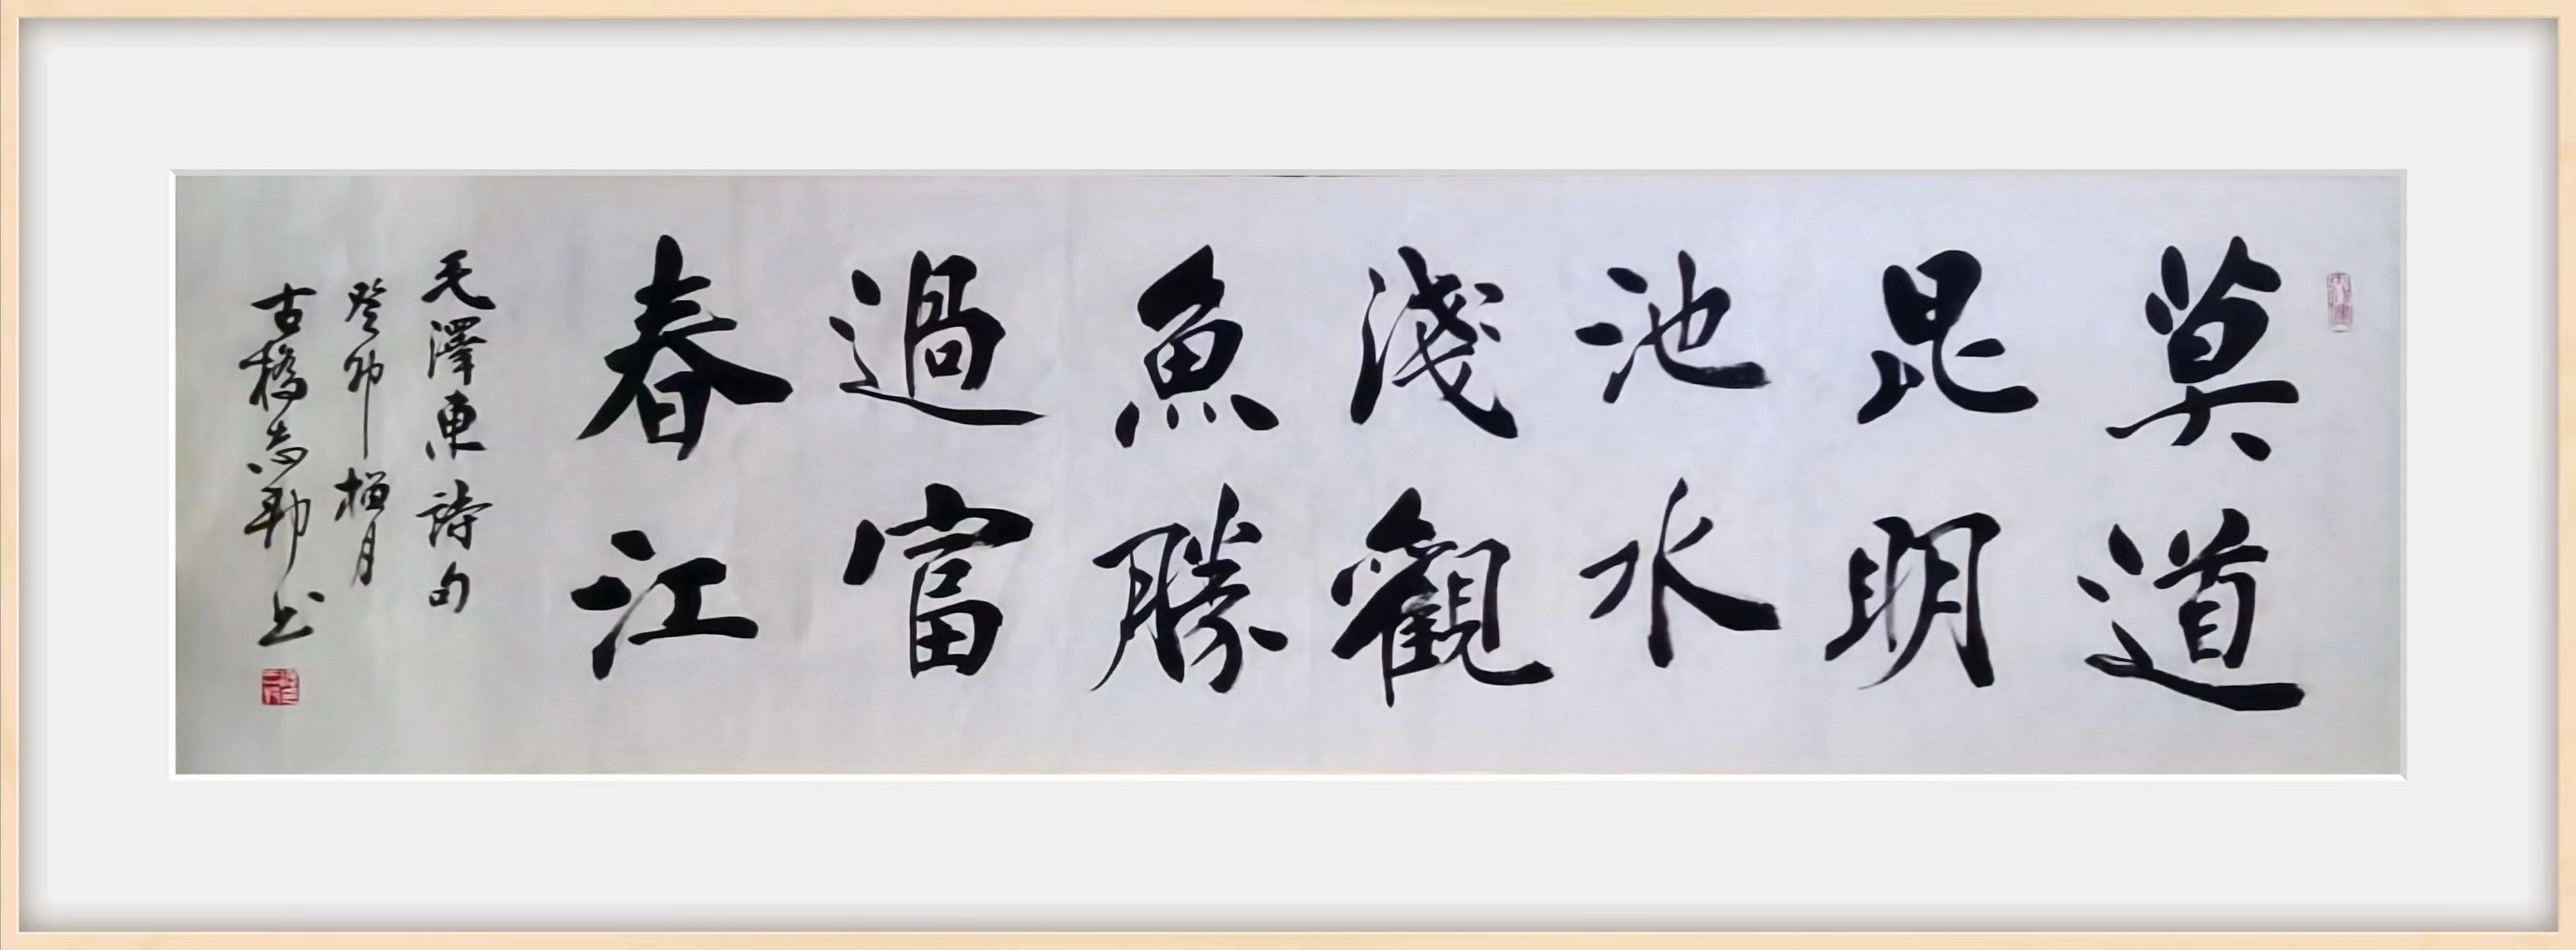 莫道
昆明
池水
淺觀
魚勝
過富
春江
毛澤東詩句
癸卯榴月
古橋志勤书